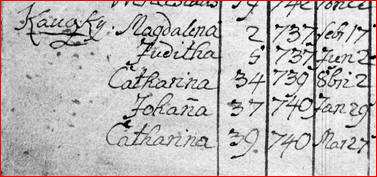 Kauazky. Magdalena 2 737 Feb 17
Juditha 5 737 Jun 2
Catharina 34 739 8br 2
Johana 37 740 Jan 29
Catharina 39. 740 Mar 27